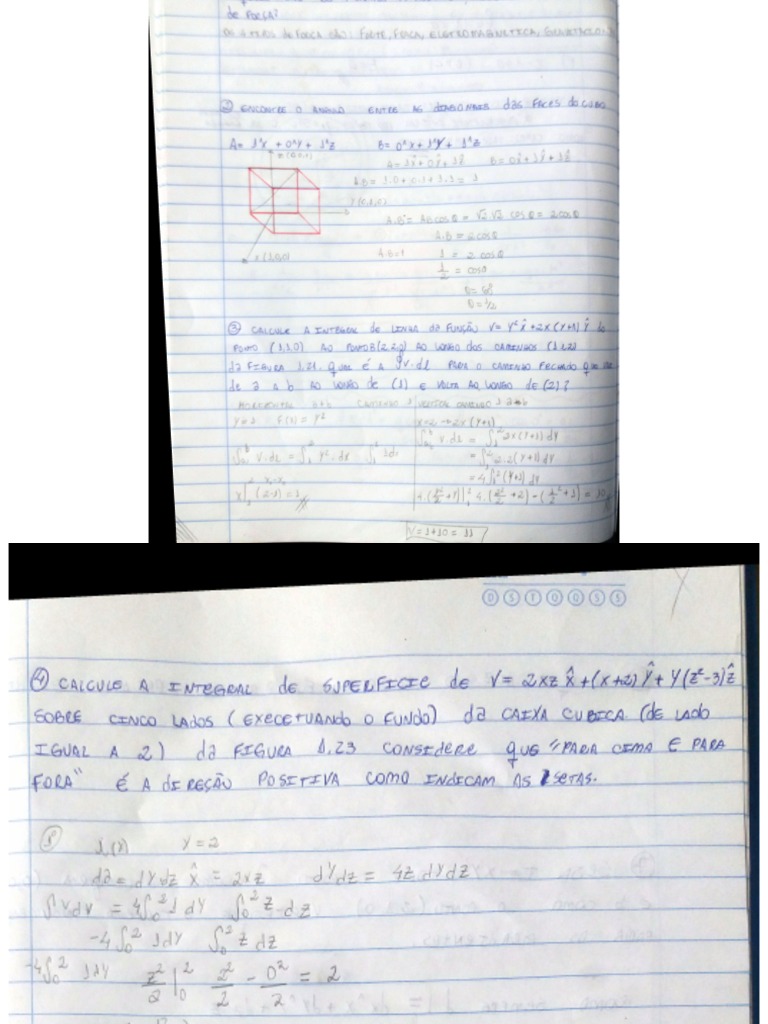 de FORÇA?
OS 4 TIPOS de FORÇA SÃO: FORTE, FRACA, ELETROMAGNETICA,
② ENCONTRE O ANGULO ENTRE AS DIAGONAIS das FACES do CUBO
A = 1^x + 0^y + 1^z B = 0^x + 1^y + 1^z
A = 1x̂ + 0ŷ + 1ẑ B = 0x̂ + 1ŷ + 1ẑ
AB = 1.0 + 0.1 + 1.1 = 1
Y (0,1,0)
A.B = AB cos θ = √2 √2 cos θ = 2 cos θ
A.B = 2 cos θ
X (1,0,0)
A.B = 1 1 = 2 cos θ
1/2 = cos θ
③ CALCULE A INTEGRAL de LINHA da FUNÇÃO V = Y² x̂ + 2x (Y+1) ŷ do
PONTO (1,1,0) AO PONTO B(2,2,0) AO LONGO dos CAMINHOS (1 e 2)
da FIGURA 1.21. Qual é A ∮V.dl PARA O CAMINHO FECHADO que vai
de a A b AO LONGO de (1) E VOLTA AO LONGO DE (2)?
HORIZONTAL CAMINHO 1 VERTICAL CAMINHO 1
Y = 1 x = 2 → 2x (Y+1)
∫ₐᵇ V.dl = ∫₁² Y².dx ∫ₐᵇ V.dl = ∫₁² 2x(Y+1) dY
= ∫₁² 2.2 (Y+1) dY
= 4∫₁² (Y+1) dY
x|₁² (2-1) = 1 4.(Y²/2 + Y)|₁² 4.(2²/2 + 2) - (1²/2 + 1) = 10
V = 1+10 = 11
D S T Q Q S S
④ CALCULE A INTEGRAL de SUPERFICIE de V = 2xz x̂ + (x+2) ŷ + Y (z²-3) ẑ
SOBRE CINCO LADOS (EXECETUANDO O FUNDO) da CAIXA CUBICA (de LADO
IGUAL A 2) da FIGURA 1.23 CONSIDERE que "PARA CIMA E PARA
FORA" É A DIREÇÃO POSITIVA COMO INDICAM AS SETAS.
X = 2
da = dY dz x̂ = 2xz dYdz = 4z dYdz
∫ V dV = 4∫₀² 1 dY ∫₀² z dz
-4∫₀² 1dY ∫₀² z dz
-4∫₀² 1dY z²/2 |₀² 2²/2 - 0²/2 = 2